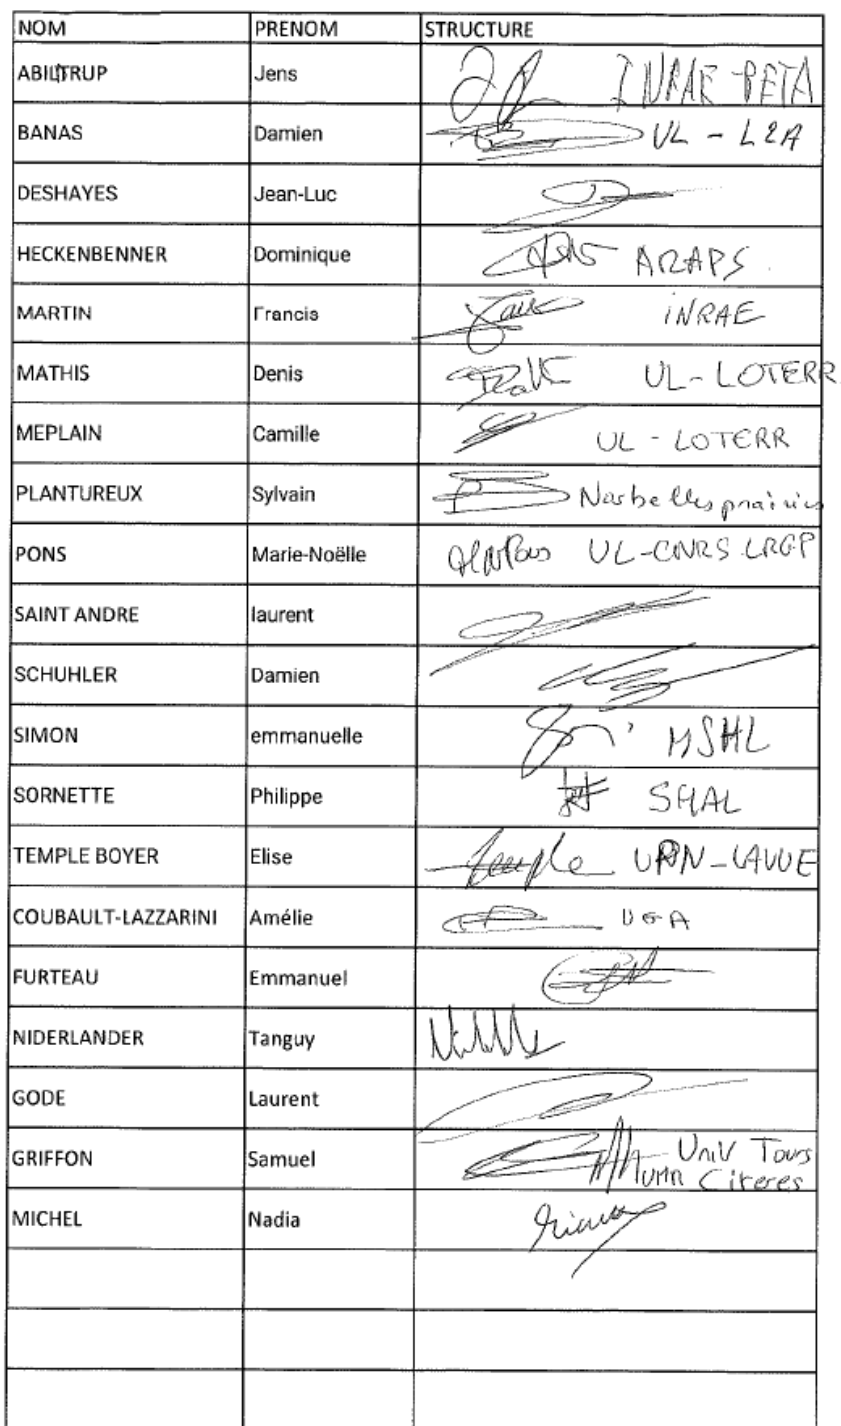 NOM PRENOM STRUCTURE
Jens INRAE-BETA
BANAS Damien UL - L2A
DESHAYES Jean-Luc
HECKENBENNER Dominique ARAPS
MARTIN Francis INRAE
MATHIS Denis UL-LOTERR
MEPLAIN Camille UL - LOTERR
PLANTUREUX Sylvain Nosbelles prairies
PONS Marie-Noëlle UL-CNRS LRGP
SAINT ANDRE laurent
SCHUHLER Damien
SIMON emmanuelle MSHL
SORNETTE Philippe SHAL
TEMPLE BOYER Elise UPN-LAVUE
COUBAULT-LAZZARINI Amélie UGA
FURTEAU Emmanuel
NIDERLANDER Tanguy
GODE Laurent
GRIFFON Samuel Univ Tours
UMR Citeres
MICHEL Nadia